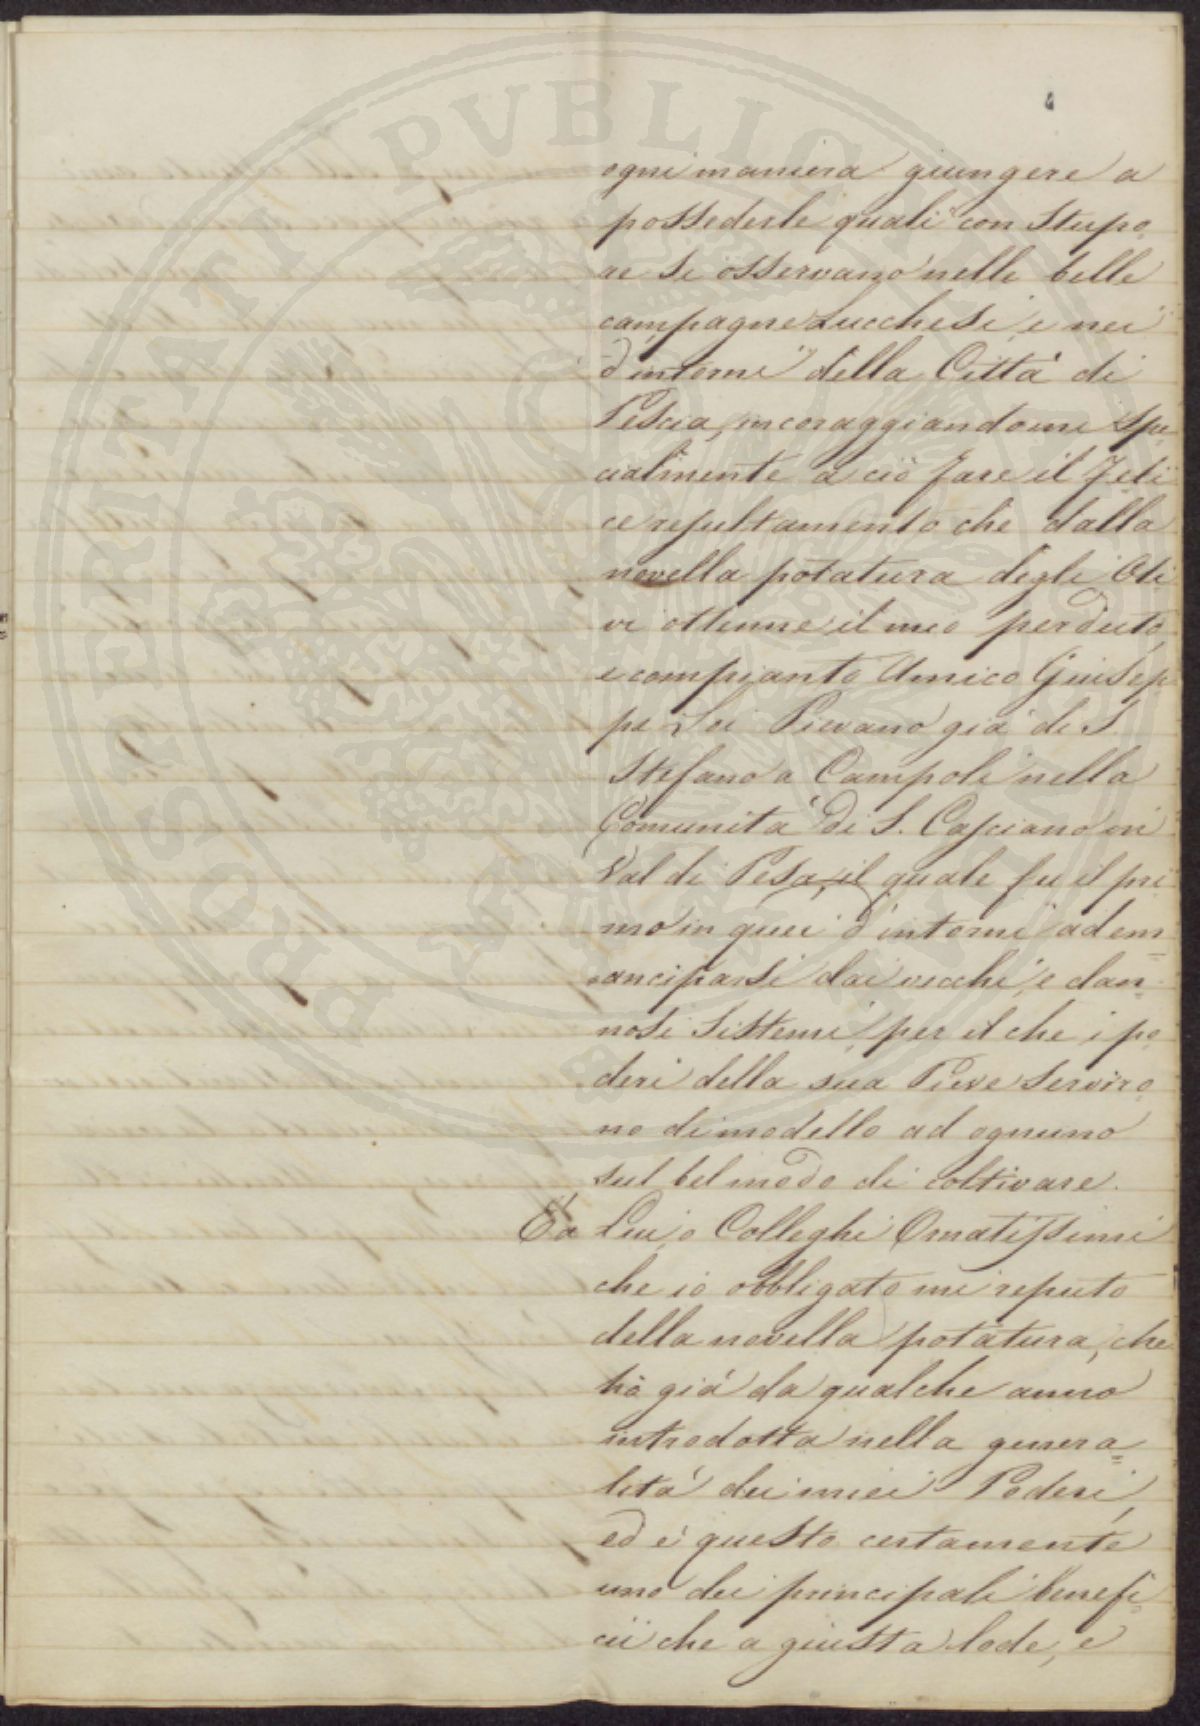 ogni maniera giungere a
possederle quali con stupo
re si osservano nelle belle
campagne Lucchesi, e nei
d'intorni della Città di
Pescia, incoraggiandomi spe
cialmente a ciò fare il feli
ce resultamento che dalla
novella potatura degli Oli
vi ottenne il mio perduto,
e compianto Amico Giusep
pe Pievano già di S.
Stefano a Campoli nella
Comunità di S. Casciano in
Val di Pesa, il quale fu il pri
mo in quei d'intorni ad em
anciparsi dai vecchi, e dan
nosi sistemi, per il che i po
deri della sua Pieve serviro
no di modello ad ognuno
sul bel modo di coltivare.
È a Lui, o Colleghi Ornatissimi
che io obbligato mi reputo
della novella potatura, che
hò già da qualche anno
introdotta nella genera=
lità dei miei Poderi,
ed è questo certamente
uno dei principali benefi
cii che a giusta lode, e
PROSPERITATI PVBLICAE